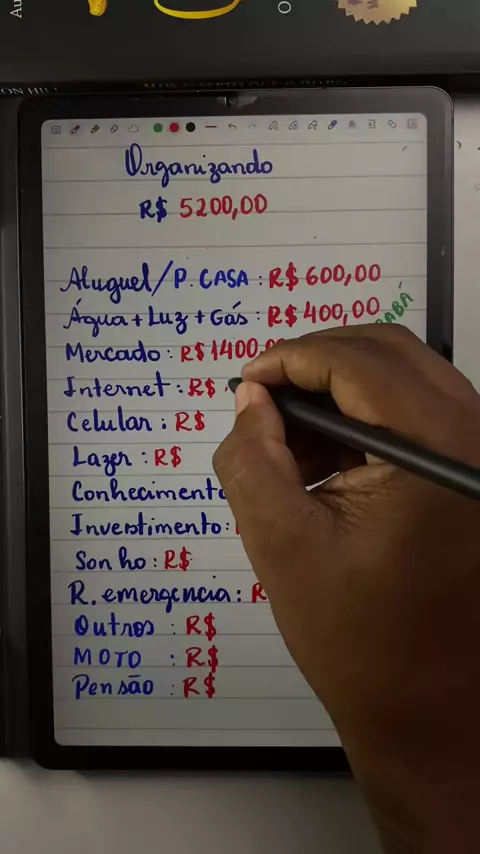 Organizando
R$ 5200,00
Aluguel/P. CASA : R$ 600,00
Água + Luz + Gás : R$ 400,00
Mercado : R$ 1400,
Internet : R$
Celular : R$
Lazer : R$
Conhecimento
Investimento :
Sonho : R$
R. emergencia : R
Outros : R$
MOTO : R$
Pensão : R$